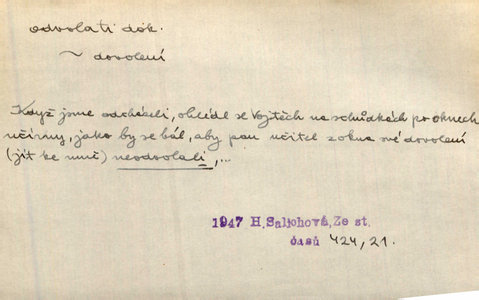 odvolati dok.
~ dovolení
Když jsme odcházeli, ohlédl se Vojtěch na schůdkách po oknech
učírny, jako by se bál, aby pan učitel z okna své dovolení
(jít ke mně) neodvolal,...
1947 H.Salichová,Ze st.
časů 424,21.